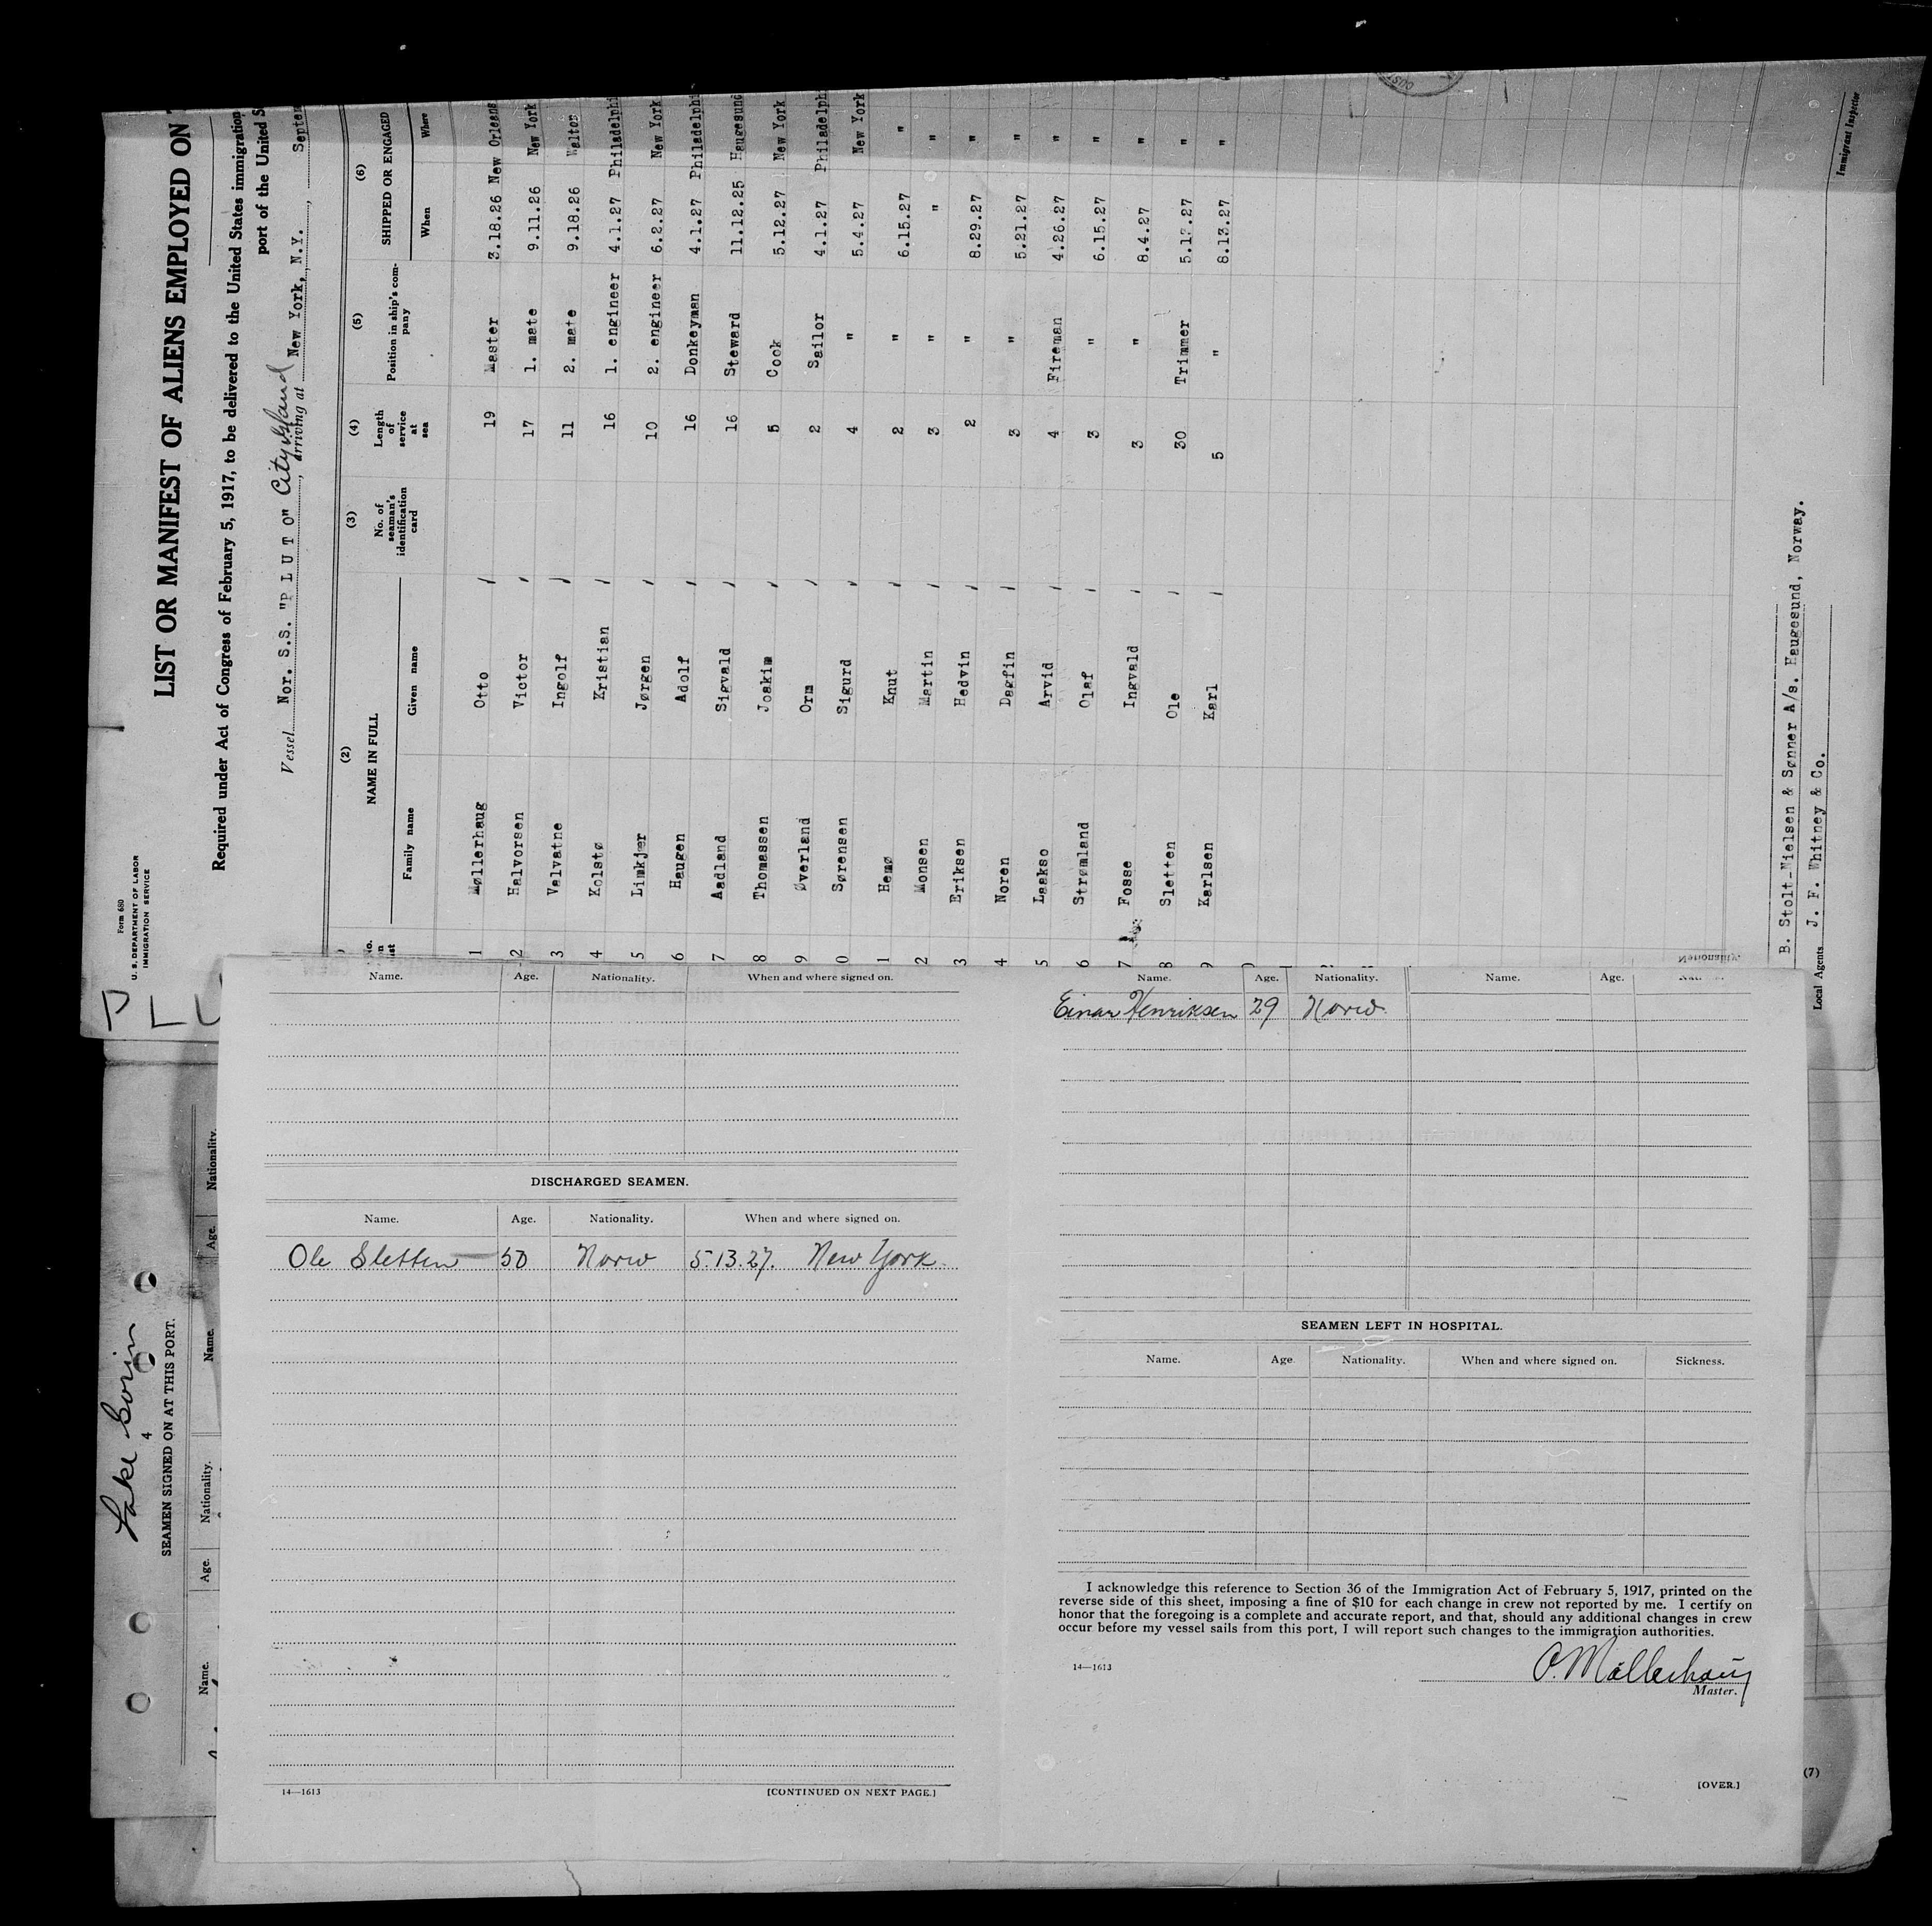 Form 680
U. S. DEPARTMENT OF LABOR
IMMIGRATION SERVICE
PLU
LIST OR MANIFEST OF ALIENS EMPLOYED ON
Required under Act of Congress of February 5, 1917, to be delivered to the United States immigration
port of the United S
Vessel Nor. S.S. "P L U T O" City Island, arriving at New York, N.Y., Septem
(2) (3) (4) (5) (6)
NAME IN FULL No. of seaman's identification card Length of service at sea Position in ship's company SHIPPED OR ENGAGED
Family name Given name When Where
1 Møllerhaug Otto 19 Master 3.18.26 New Orleans
2 Halvorsen Victor 17 1. mate 9.11.26 New York
3 Valvatne Ingolf 11 2. mate 9.18.26 Walton
4 Kolstø Kristian 16 1. engineer 4.1.27 Philadelphi
5 Limkjær Jørgen 10 2. engineer 6.2.27 New York
6 Haugen Adolf 16 Donkeyman 4.1.27 Philadelphi
7 Aadland Sigvald 16 Steward 11.12.25 Haugesund
8 Thomassen Joakim 5 Cook 5.12.27 New York
9 Øverland Orm 2 Sailor 4.1.27 Philadelphi
0 Sørensen Sigurd 4 " 5.4.27 New York
1 Hemø Knut 2 " 6.15.27 "
2 Monsen Martin 3 " " "
3 Eriksen Hedvin 2 " 8.29.27 "
4 Noren Dagfin 3 " 5.21.27 "
5 Laakso Arvid 4 Fireman 4.26.27 "
6 Strømland Olaf 3 " 6.15.27 "
7 Fosse Ingvald 3 " 8.4.27 "
8 Sletten Ole 30 Trimmer 5.13.27 "
9 Karlsen Karl 5 " 8.13.27 "
B. Stolt-Nielsen & Sønner A/s. Haugesund, Norway.
Local Agents J. F. Whitney & Co.
Immigrant Inspector
Name. Age. Nationality. When and where signed on.
DISCHARGED SEAMEN.
Name. Age. Nationality. When and where signed on.
Ole Sletten 50 Norw 5.13.27. New York.
14—1613
[CONTINUED ON NEXT PAGE.]
Name. Age. Nationality. Name. Age.
Einar Henriksen 29 Norw.
SEAMEN LEFT IN HOSPITAL.
Name. Age. Nationality. When and where signed on. Sickness.
I acknowledge this reference to Section 36 of the Immigration Act of February 5, 1917, printed on the
reverse side of this sheet, imposing a fine of $10 for each change in crew not reported by me. I certify on
honor that the foregoing is a complete and accurate report, and that, should any additional changes in crew
occur before my vessel sails from this port, I will report such changes to the immigration authorities.
14—1613
O. Møllerhaug
Master.
[OVER.]
(7)
Lake
4
SEAMEN SIGNED ON AT THIS PORT.
Name. Age. Nationality. Name. Age. Nationality.